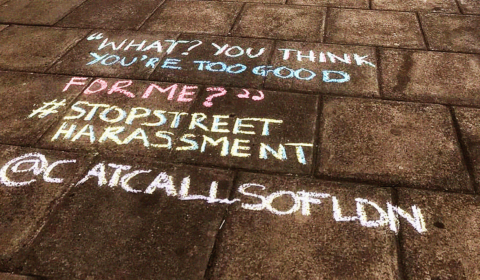 "WHAT? YOU THINK
YOU'RE TOO GOOD
FOR ME?"
#STOPSTREET
HARASSMENT
@CATCALLSOFLDN